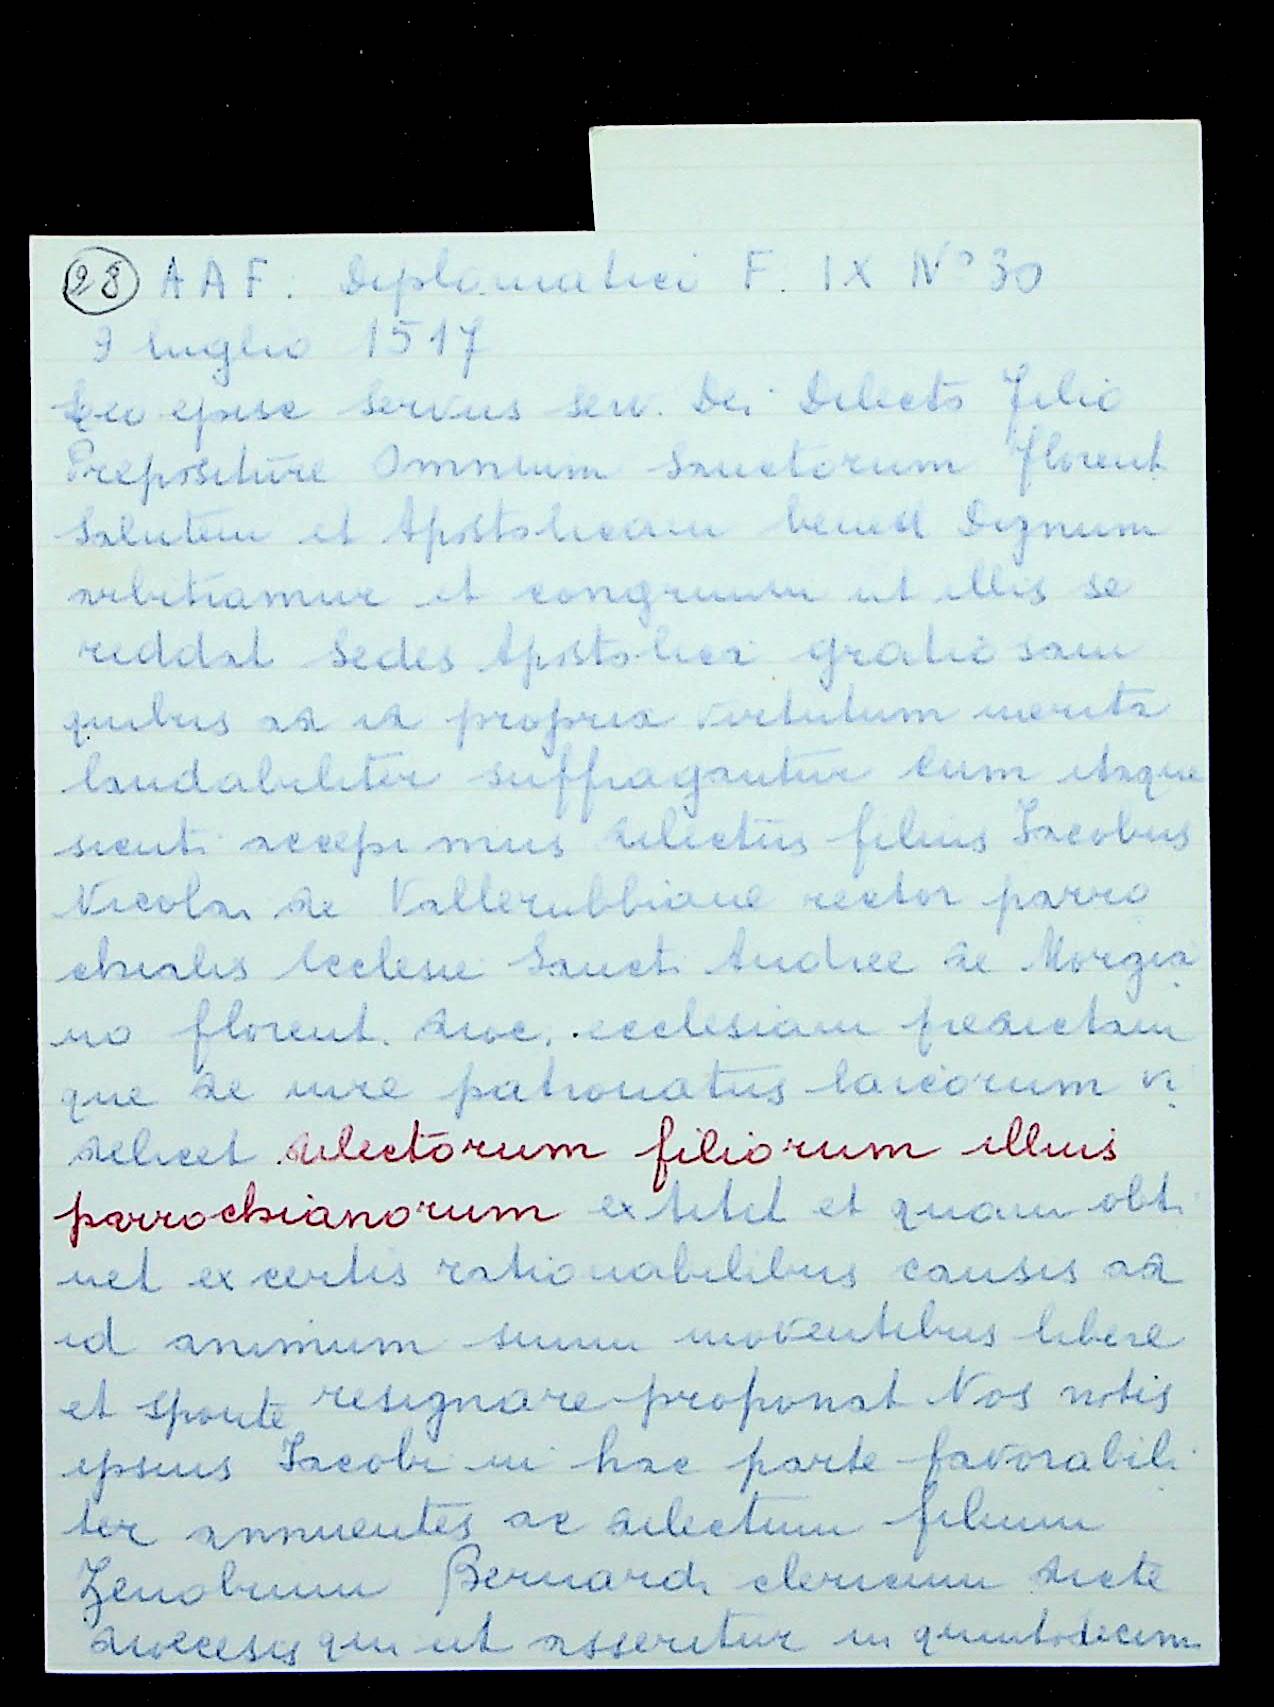 28 A A F. Diplomatici F. IX N° 30
9 luglio 1517
Leo episc servus serv. Dei Dilecto filio
Prepositure Omnium Sanctorum florent
Salutem et Apostolicam bened Dignum
arbitramur et congruum ut illis se
reddat Sedes Apostolica gratiosam
quibus ad id propria virtutum merita
laudabiliter suffragantur Cum itaque
sicut accepimus dilectus filius Jacobus
Nicolai de Vallerubbiane rector parro
chialis Ecclesie Sancti Andree de Morgia
no florent. dioc. ecclesiam predictam
que de iure patronatus laicorum vi
delicet dilectorum filiorum illius
parrochianorum extitit et quam obti
net ex certis rationabilibus causis ad
id animum suum moventibus libere
et sponte resignare proponat Nos votis
ipsius Jacobi in hac parte favorabili
ter annuentes ac dilectum filium
Zenobium Bernardi clericum dicte
diocesis qui ut asseritur in quintodecimo